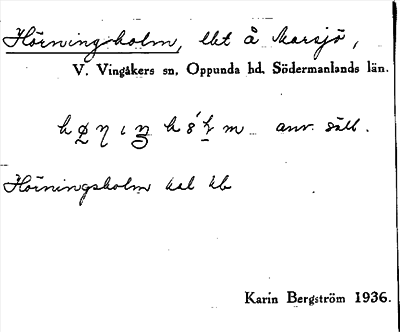 Hörningsholm, lht å Marsjö,
V. Vingåkers sn, Oppunda hd, Södermanlands län.
anv. säll.
Hörningsholm kal hb
Karin Bergström 1936.